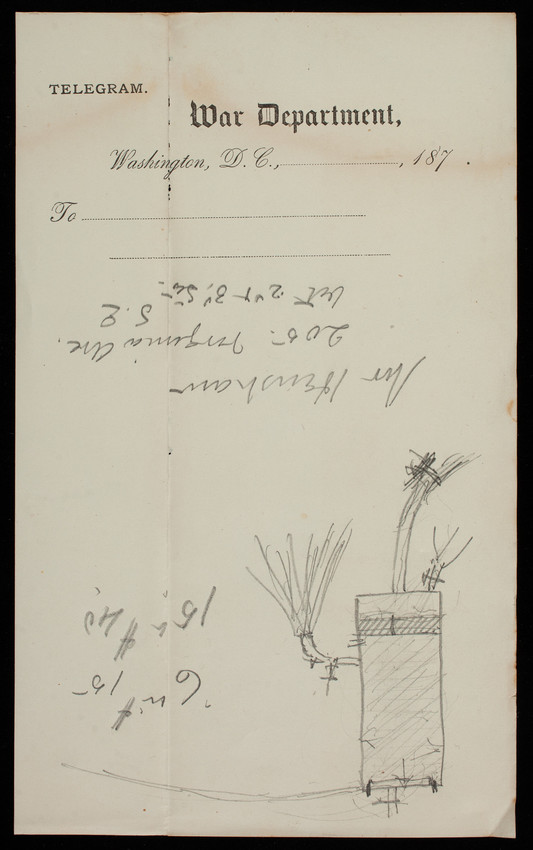 TELEGRAM.
War Department,
Washington, D. C., , 187 .
To
Mr Henshaw
205 Virginia Ave.
S. E
bet 2d & 3d Sts
15 in # 40
6 in # 15